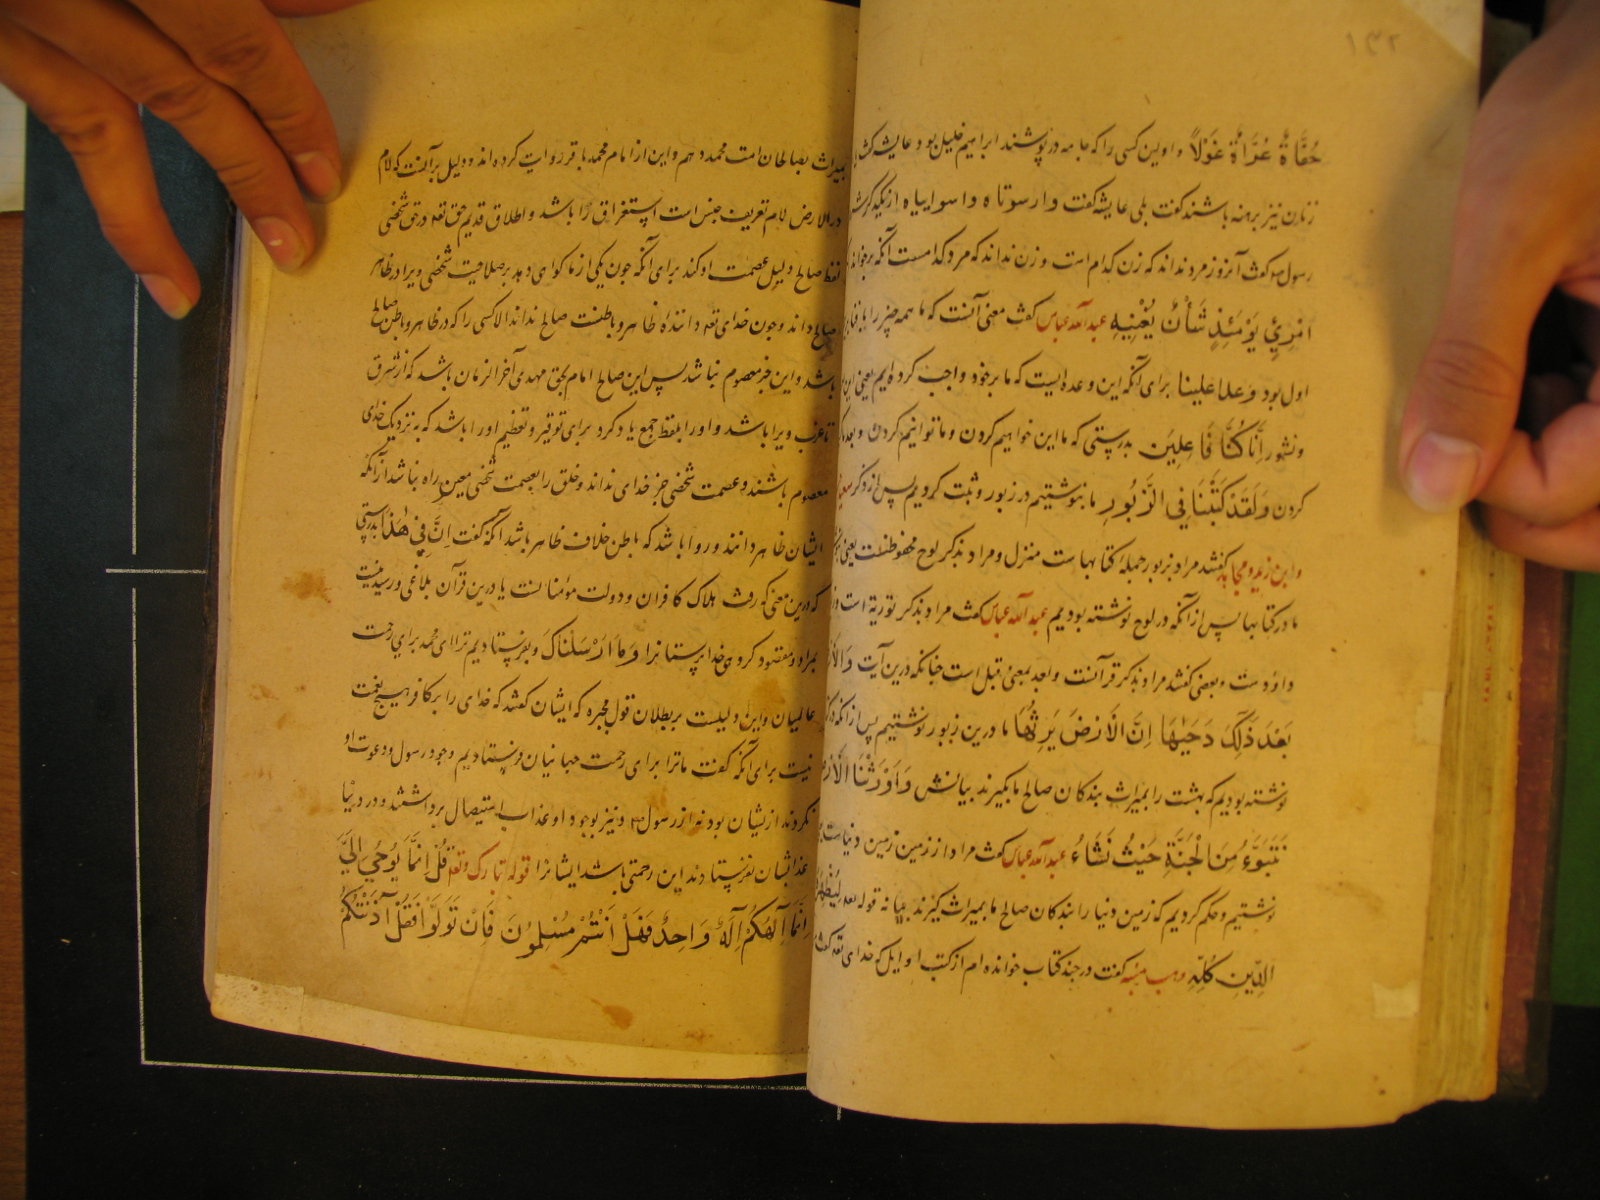 ۱۴۲
حُفَاةً عُرَاةً غَوْلاً و اولین کسی را که جامه در پوشند ابراهیم خلیل بود عایشه گفت
زنان نیز برهنه باشند گفت بلی عایشه گفت وارسوتاه واسوایاه از یکدیگر
رسول گفت آنروز مرد نداند که زن کدام است و زن نداند که مرد کدامست آنگه برخواند
امْرِئٍ يَوْمَئِذٍ شَأْنٌ يُغْنِيهِ عبدالله عباس گفت معنی آنست که ما همه چیز را
اول بود وعدا علينا برای آنکه این وعده ایست که ما بر خود واجب کرده ایم یعنی این
ونشور اِنَّا كُنَّا فَاعِلِينَ بدرستی که ما این خواهیم کردن و ما توانیم کردن و بعد
کردن وَلَقَدْ كَتَبْنَا فِي الزَّبُورِ ما بنوشتیم در زبور و ثبت کردیم پس از ذکر
وابن زید و مجاهد گفتند مراد بزبور جمله کتابهاست منزل و مراد بذکر لوح محفوظست یعنی
ما در کتابها پس از آنکه در لوح نوشته بودیم عبدالله عباس گفت مراد بذکر توریة است و
داودست و بعضی گفتند مراد بذکر قرآنست و بعد بمعنی قبل است چنانکه درین آیت وَالأرْ
بَعْدَ ذَلِكَ دَحَيٰهَا اِنَّ الْاَرْضَ يَرِثُهَا ما درین زبور نوشتیم پس از آنکه در
نوشته بودیم که بهشت را بمیراث بندکان صالح ما بگیرند بیانش وَاَوْرَثَنَا الْاَرْضَ
نَتَبَوَّءُ مِنَ الْجَنَّةِ حَيْثُ نَشَاءُ عبدالله عباس گفت مراد از زمین زمین دنیاست
نوشتیم و حکم کردیم که زمین دنیا را بندکان صالح ما بمیراث گیرند بیانه قوله تعه لیظهره
الدِّينِ كُلِّهِ وهب منبه گفت در چند کتاب خوانده ام از کتب اوایل که خدای تعه گفت
بمیراث بصالحان امت محمد دهم و این از امام محمد باقر روایت کرده اند و دلیل برآنست که لام
در الارض لام تعریف جنس است استغراق را باشد و اطلاق قدیم حق تعه در حق شخصی
لفظ صالح دلیل عصمت او کند برای آنکه چون یکی از ما کوای دهد بر صلاحیت شخصی ویرا در ظاهر
صالح داند و چون خدای تعه دانندهٔ ظاهر و باطنست صالح نداند الا کسی را که در ظاهر و باطن صالح
باشد و این جز معصوم نباشد پس این صالح امام بحق مهدی آخر الزمان باشد که از شرق
تا غرب ویرا باشد و او را بلفظ جمع یاد کرد برای توقیر و تعظیم او را باشد که به نزدیک خدای
معصوم باشند و عصمت شخصی جز خدای نداند و خلق را بعصمت شخصی معین راه نباشد از آنکه
ایشان ظاهر دانند و روا باشد که باطن خلاف ظاهر باشد آنگه گفت اِنَّ فِي هٰذَا بدرستی
که درین معنی که رفت هلاک کافران و دولت مؤمنانست یا درین قرآن بلاغی و رسیدنیست
بمراد و مقصود کروهی خدا پرستانرا وَمَا اَرْسَلْنَاكَ و نفرستادیم ترا ای محمد برای رحمت
عالمیان و این دلیلست بر بطلان قول مجبره که ایشان گفتند که خدای را بر کافر هیچ نعمت
نیست برای آنکه گفت ما ترا برای رحمت جهانیان فرستادیم وجود رسول و دعوت او
نکردند از ایشان بود نه از رسول و نیز بوجود او عذاب استیصال برداشتند و در دنیا
عذابشان نفرستادند این رحمتی باشد ایشانرا قوله تبارک وتعه قُلْ اِنَّمَا يُوحٰى اِلَيَّ
اَنَّمَا اِلٰهُكُمْ اِلٰهٌ وَاحِدٌ فَهَلْ اَنْتُمْ مُسْلِمُونَ فَاِنْ تَوَلَّوْا فَقُلْ اٰذَنْتُكُمْ